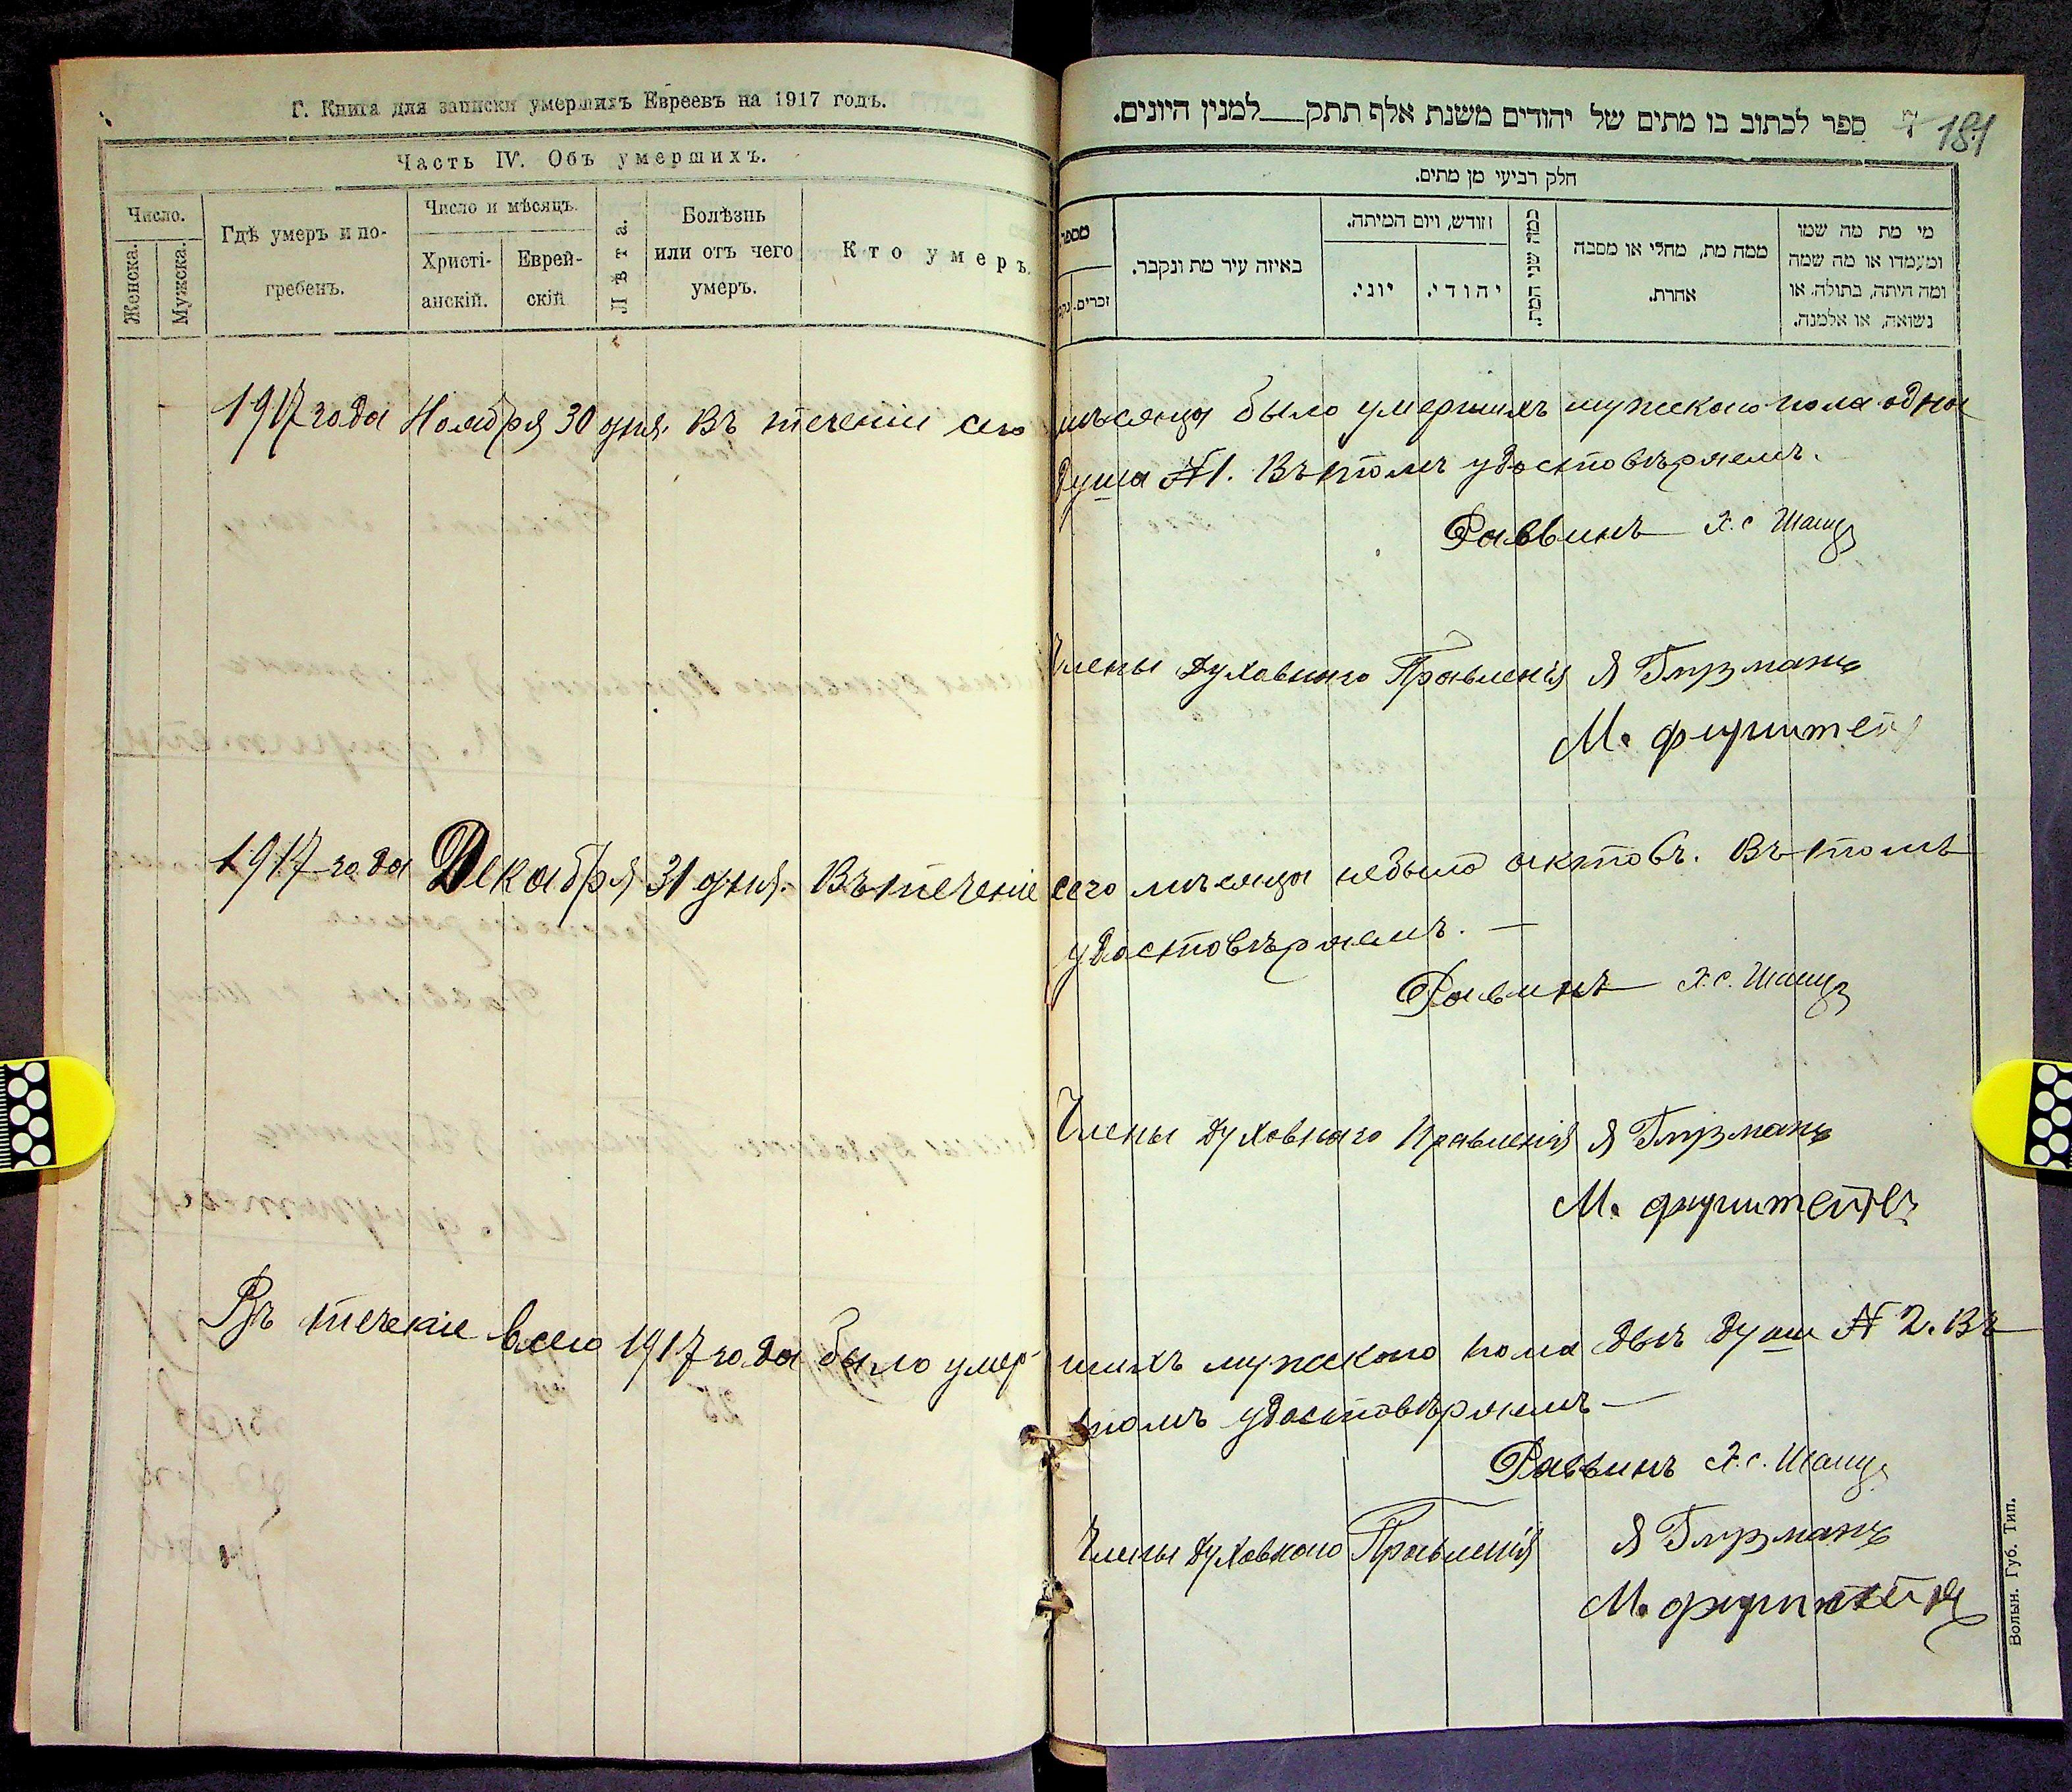 Г. Книга для записки умершихъ Евреевъ на 1917 годъ.
Часть IV. Объ умершихъ.
Число.
Женска.
Мужска.
Гдѣ умеръ и по-
гребенъ.
Число и мѣсяцъ.
Христі-
анскій.
Еврей-
скій
Лѣта.
Болѣзнь
или отъ чего
умеръ.
Кто умеръ.
ספר לכתוב בו מתים של יהודים משנת אלף תתק___למנין היונים.
181
חלק רביעי מן מתים.
מספר
זכרים.
באיזה עיר מת ונקבר.
חודש, ויום המיתה.
יוני.
יהודי.
כמה שני המת.
ממה מת, מחלי או מסבה
אחרת.
מי מת מה שמו
ומעמדו או מה שמה
ומה היתה, בתולה, או
נשואה, או אלמנה.
1917 года Ноября 30 дня. Въ теченіи сего мѣсяца было умершихъ мужскаго пола одна
душа № 1. Въ томъ удостовѣряемъ.
Раввинъ Х. С.
Члены Духовнаго Правленія Я
М.
1917 года Декабря 31 дня. Въ теченіе сего мѣсяца небыло актовъ. Въ томъ
удостовѣряемъ. —
Равинъ Х. С.
Члены Духовнаго Правленія Я
М.
Въ теченіе всего 1917 года было умер- шихъ мужскаго пола двѣ душ № 2. Въ
томъ удостовѣряемъ —
Раввинъ Х. С.
Члены Духовнаго Правленія Я
М.
Волын. Губ. Тип.